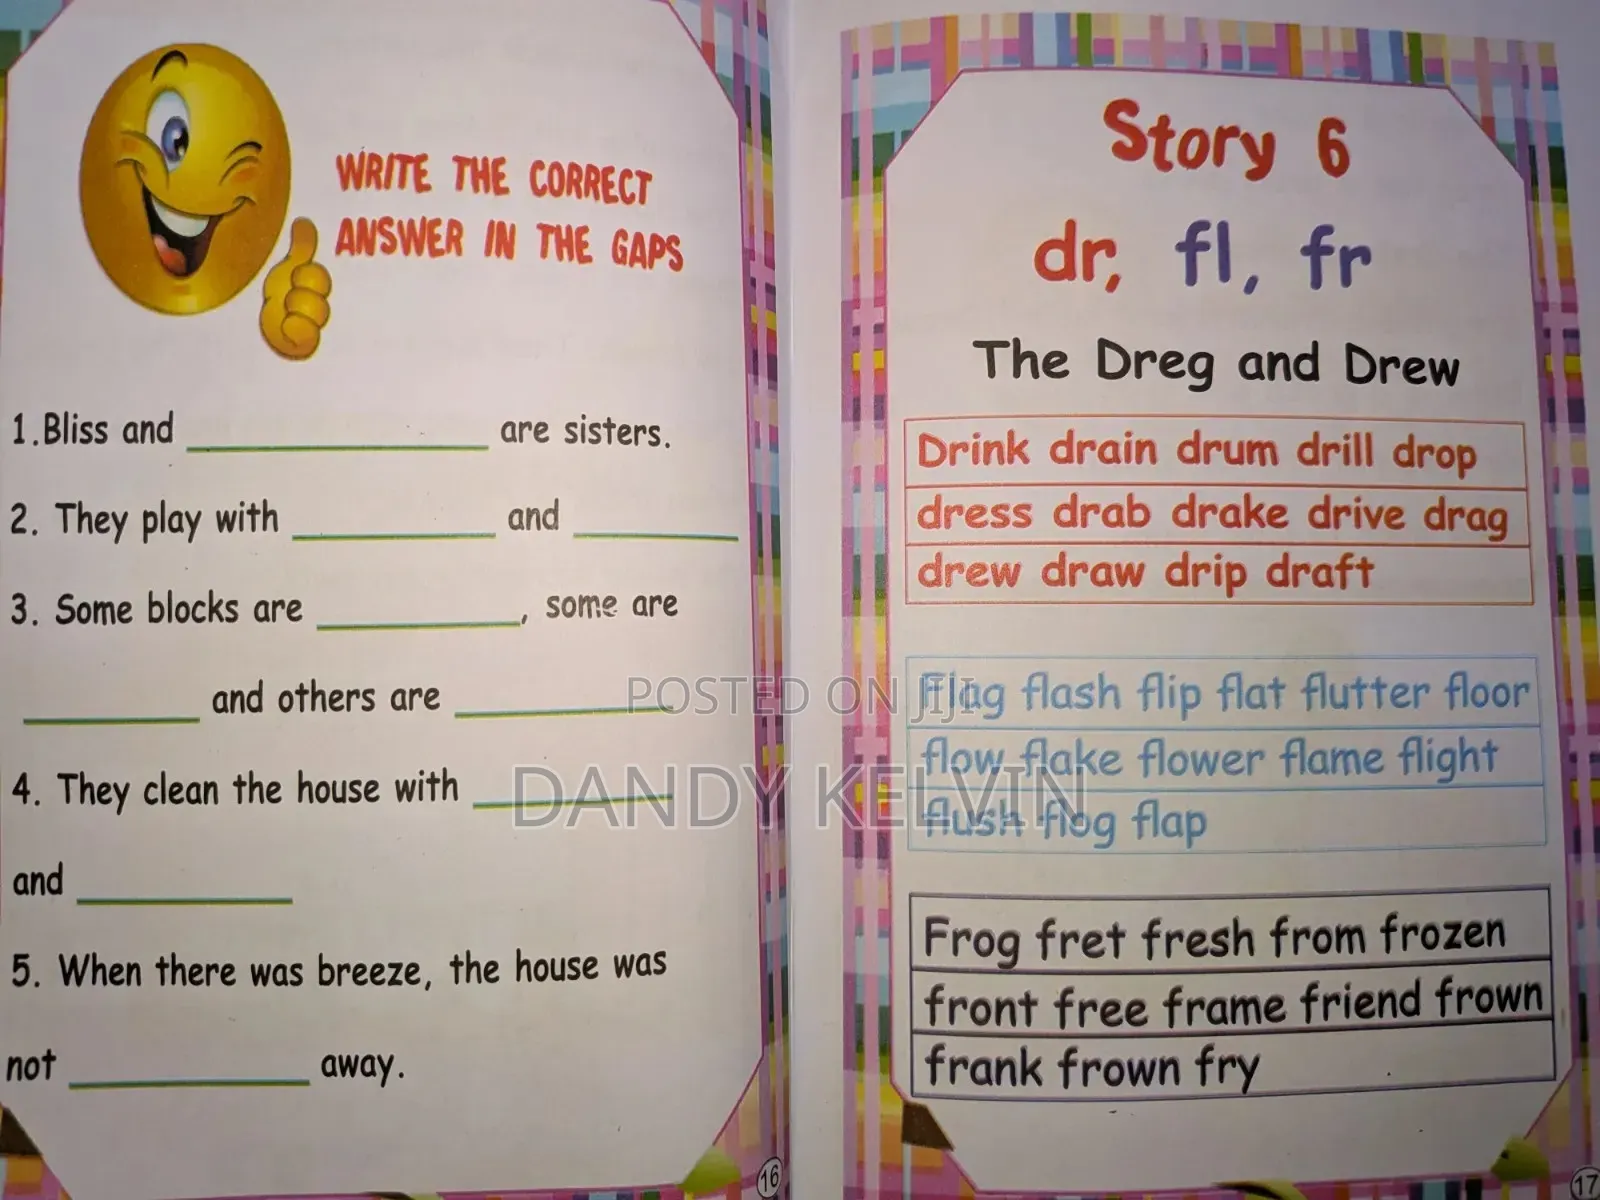 WRITE THE CORRECT
ANSWER IN THE GAPS
1.Bliss and ____ are sisters.
2. They play with ____ and ____
3. Some blocks are ____, some are
____ and others are ____
4. They clean the house with ____
and ____
5. When there was breeze, the house was
not ____ away.
16
Story 6
dr, fl, fr
The Dreg and Drew
Drink drain drum drill drop
dress drab drake drive drag
drew draw drip draft
Flag flash flip flat flutter floor
flow flake flower flame flight
flush flog flap
Frog fret fresh from frozen
front free frame friend frown
frank frown fry
17
POSTED ON JIJI
DANDY KELVIN